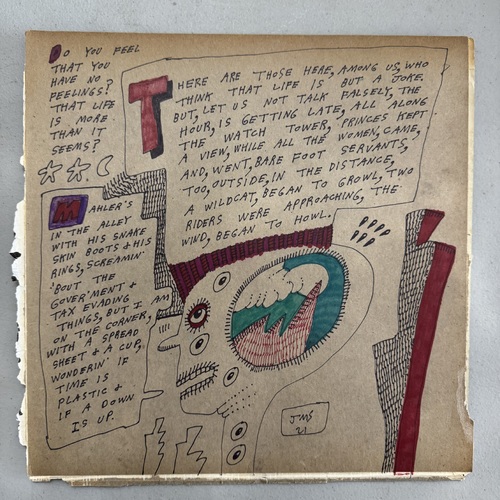 DO YOU FEEL
THAT YOU
HAVE NO
FEELINGS?
THAT LIFE
IS MORE
THAN IT
SEEMS?
THERE ARE THOSE HERE, AMONG US, WHO
THINK THAT LIFE IS BUT A JOKE.
BUT, LET US NOT TALK FALSELY, THE
HOUR, IS GETTING LATE, ALL ALONG
THE WATCH TOWER, PRINCES KEPT
A VIEW, WHILE ALL THE WOMEN, CAME,
AND, WENT, BARE FOOT SERVANTS,
TOO, OUTSIDE, IN THE DISTANCE,
A WILDCAT, BEGAN TO GROWL, TWO
RIDERS WERE APPROACHING, THE
WIND, BEGAN TO HOWL.
MAHLER'S
IN THE ALLEY
WITH HIS SNAKE
SKIN BOOTS & HIS
RINGS, SCREAMIN'
'BOUT THE
GOVER'MENT &
TAX EVADING
THINGS, BUT I AM
ON THE CORNER,
WITH A SPREAD
SHEET & A CUP,
WONDERIN' IF
TIME IS
PLASTIC &
IF A DOWN
IS UP.
JMS
21